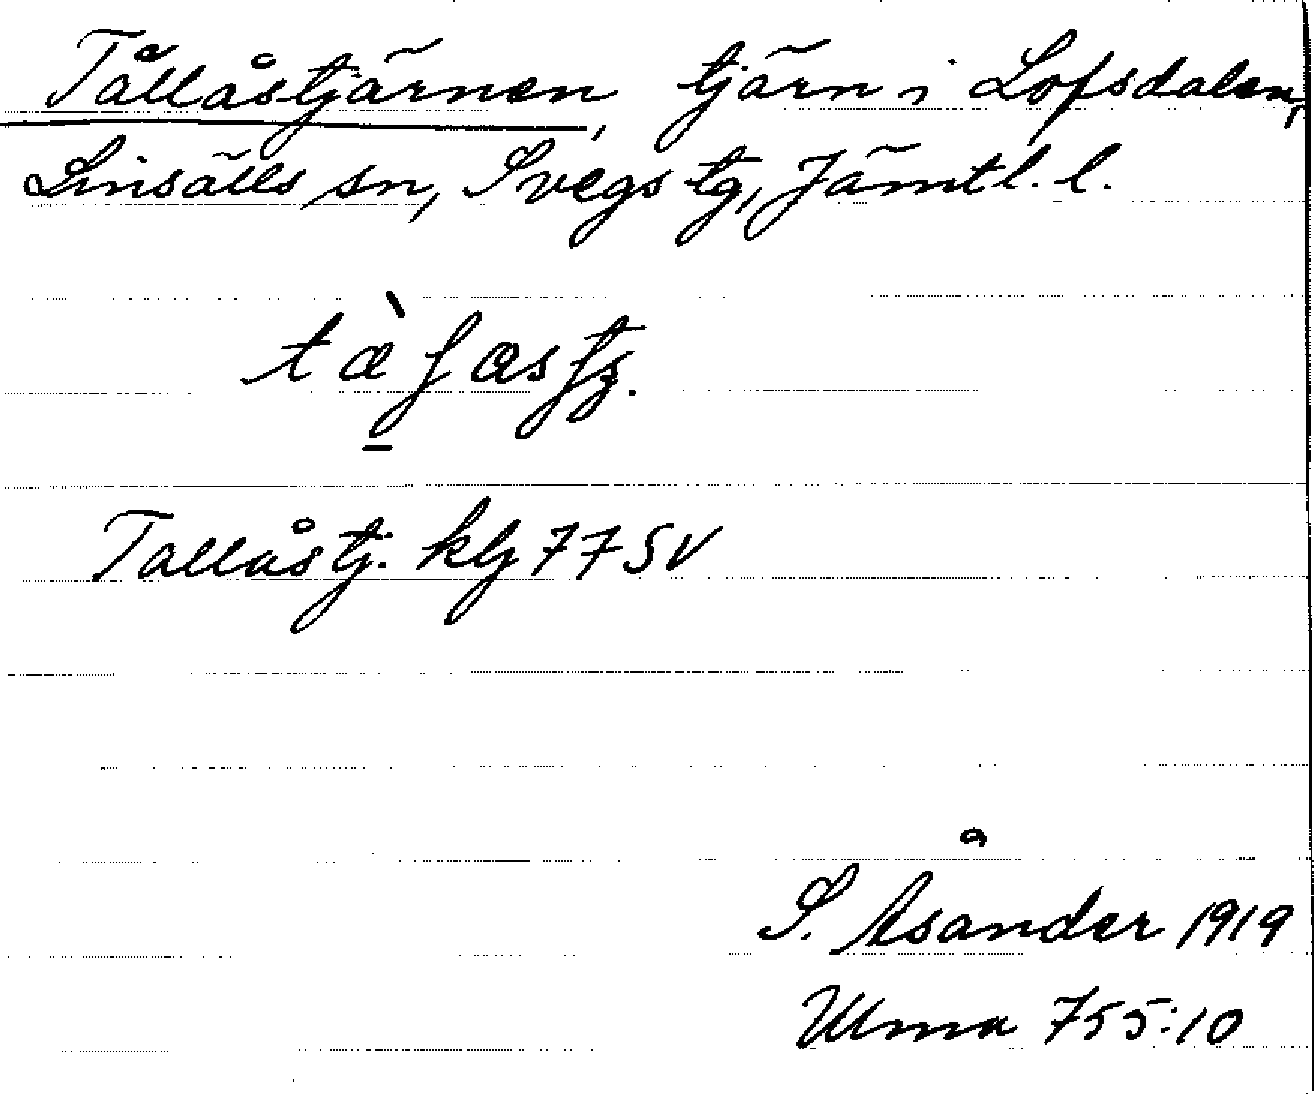 Tållåstjärnen, tjärn i Lofsdalen,
Linsälls sn, Svegs tg, Jämtl. l.
Tallåstj. kbj 77 SV
S. Åsander 1919
Ulma 755:10